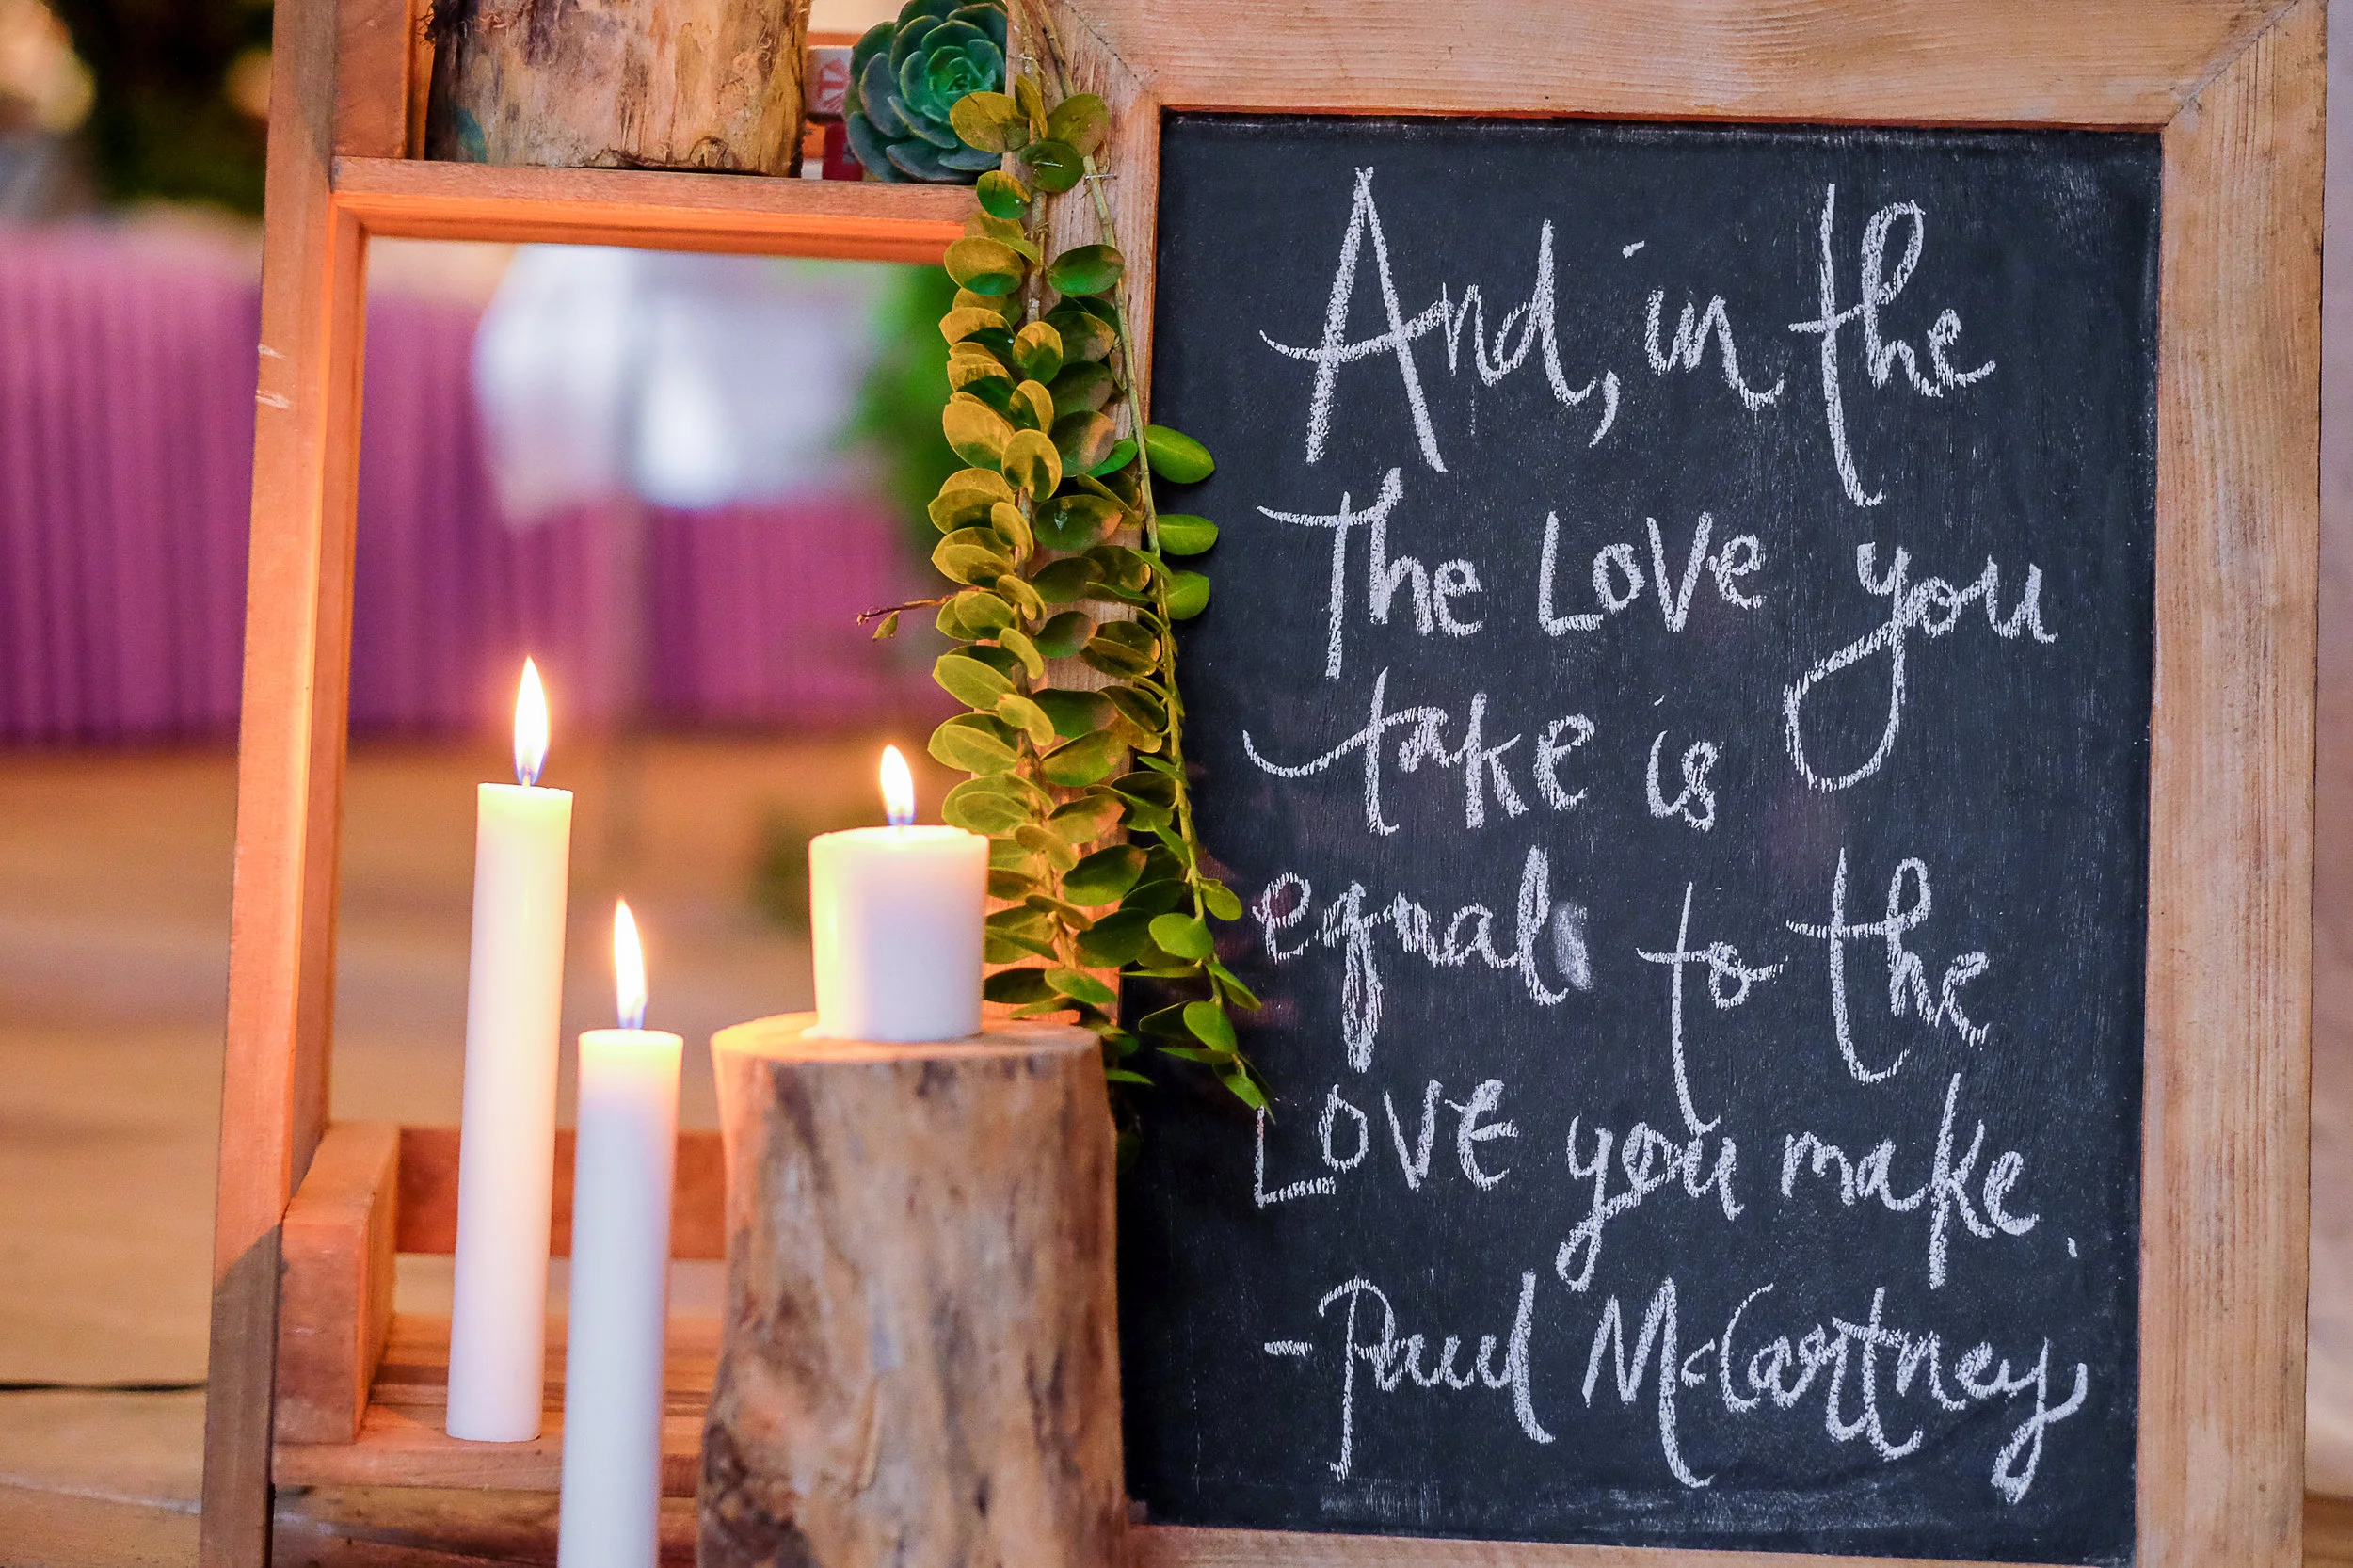 And, in the
The Love you
take is
equal to the
Love you make.
-Paul McCartney